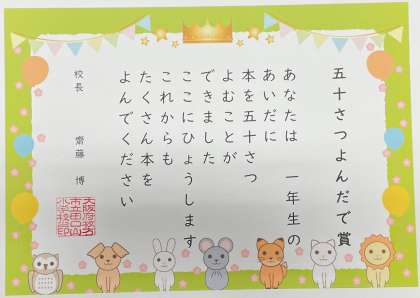 五十さつよんだで賞
あなたは 一年生の
あいだに
本を五十さつ
よむことが
できました
ここにひょうします
これからも
たくさん本を
よんでください
校長 齋藤 博